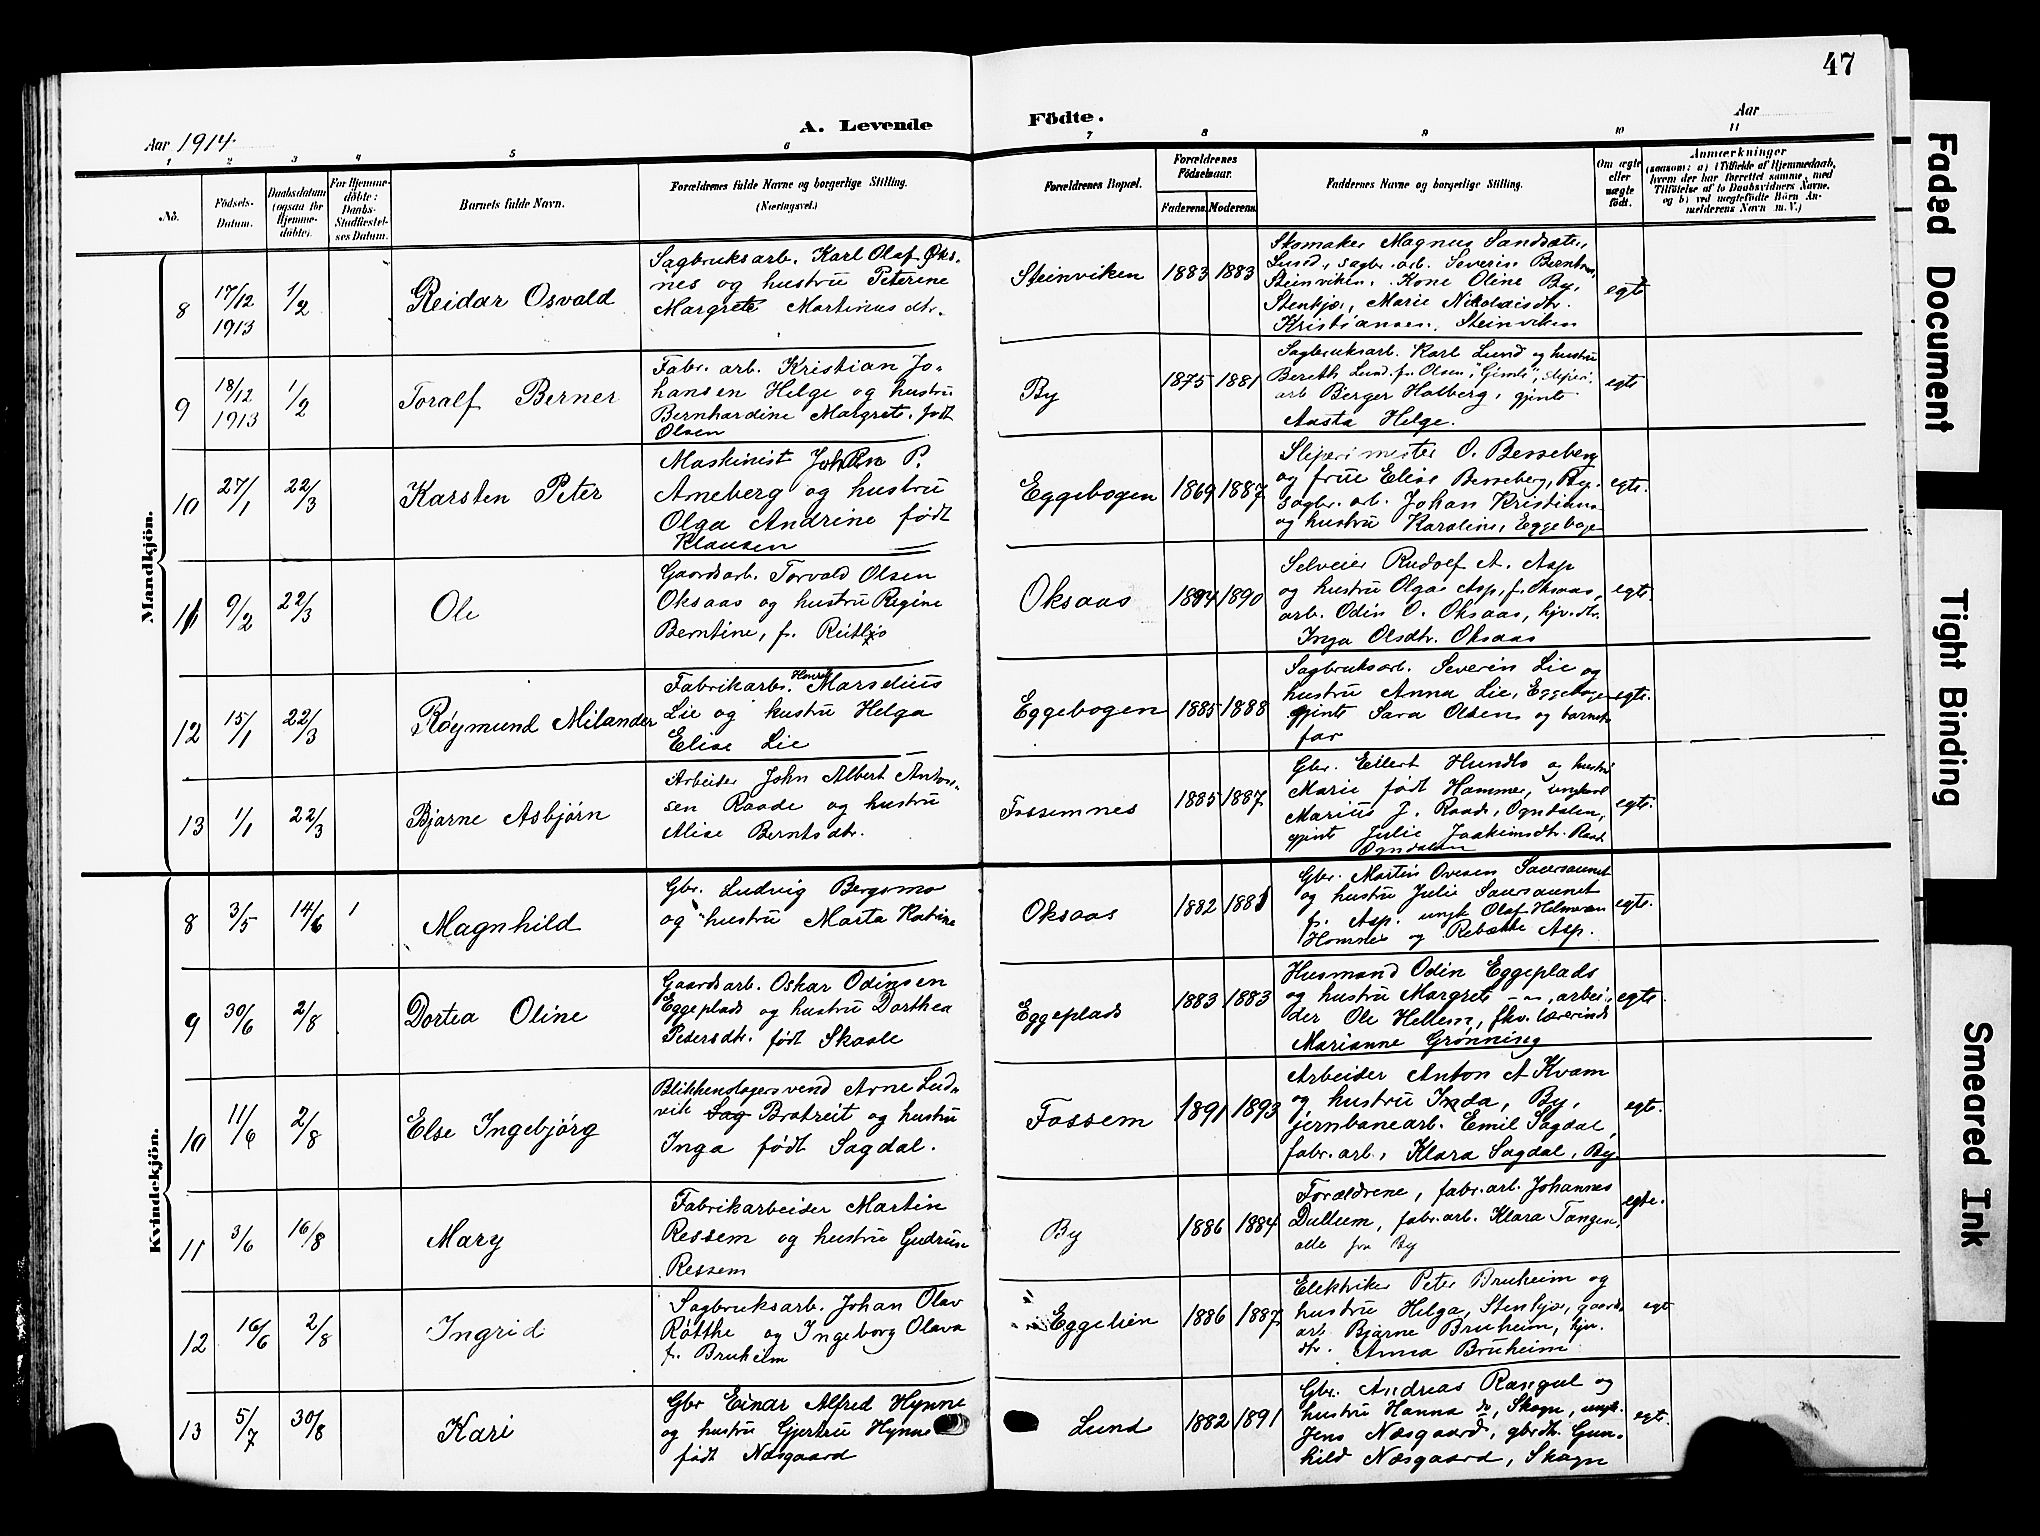 47
Aar 1914.
A. Levende Födte.
Aar
1 2 3 4 5 6 7 8 9 10 11
No.
Födsels-Datum.
Daabsdatum (ogsaa for Hjemme-döbte).
For Hjemme-döbte: Daabs-Stadfæstel-ses Datum.
Barnets fulde Navn.
Forældrenes fulde Navne og borgerlige Stilling.
(Næringsvei.)
Forældrenes Bopæl.
Forældrenes Födselsaar.
Faderens. Moderens.
Faddernes Navne og borgerlige Stilling.
Om ægte eller uægte födt.
Anmærkninger
(saasom: a) i Tilfælde af Hjemmedaab, hvem der har forrettet samme, med Tilföielse af to Daabsvidners Navne, og b) ved uægtefödte Börn An-melderens Navn m. V.)
Mandkjön.
8 17/12 1913 1/2 Reidar Osvald
Sagbruksarb. Karl Olaf Øks-
nes og hustru Peterine
Margrete Martinusdtr.
Steinviken 1883 1883
Skomaker Magnus Sandsæter,
Lund, sagbr. arb. Severin Berntsen,
Steinviken. Kone Oline By,
Stenkjær, Marie Nikolaisdtr.
Kristiansen, Steinviken
egte
9 18/12 1913 1/2 Toralf Berner
Fabr. arb. Kristian Jo-
hansen Helge og hustru
Bernhardine Margrete, født
Olsen
By 1875 1881
Sagbruksarb. Karl Lund og hustru
Bereth Lund f. Olsen, "Gimle", sliperi
arb Berger Holberg, gjente
Aasta Helge.
egte
10 27/1 22/3 Karsten Peter
Maskinist Johan P.
Arneberg og hustru
Olga Andrine født
Klausen
Eggebogen 1869 1887
Sliperimester O. Besseberg
og frue Elise Besseberg, By.
sagbr. arb. Johan Kristians
og hustru Karoline, Eggeboge
egte.
11 9/2 22/3 Ole
Gaardsarb. Torvald Olsen
Oksaas og hustru Regine
Berntine, f. Reitlo
Oksaas 1884 1890
Selveier Rudolf A. Asp
og hustru Olga Asp, f. Oksaas,
arb. Odin O. Oksaas, hjv. dtr.
Inga Olsdtr. Oksaas
egte.
12 15/1 22/3 Røymund Milander
Fabrikarb. Henrik Marselius
Lie og hustru Helga
Elise Lie
Eggebogen 1885 1888
Sagbruksarb. Severin Lie og
hustru Anna Lie, Eggebogen
gjente Sara Olsen og barnets
far
egte.
13 1/1 22/3 Bjarne Asbjørn
Arbeider John Albert Anton-
sen Raade og hustru
Alise Berntsdtr.
Fossemnes 1885 1887
Gbr. Eilert Hundlo og hustru
Marie født Hammer, ungkarl
Marius J. Raade, Ogndalen,
gjente Julie Joakimsdtr. Raad
Ogndalen
egte.
Kvindekjön.
8 3/5 14/6 1 Magnhild
Gbr. Ludvig Bergsmo
og hustru Marta Katrine
Oksaas 1882 1881
Gbr. Martin Ovesen Saursaunet
og hustru Julie Saursaunet
f. Asp. ungk. Olaf Hilmersen
Hammer og Rebækka Asp.
egte.
9 30/6 2/8 Dortea Oline
Gaardsarb. Oskar Odinsen
Eggeplads og hustru Dorthea
Petersdtr. født Skaale
Eggeplads 1883 1883
Husmand Odin Eggeplads
og hustru Margrete — " —, arbei-
der Ole Hellem, fhv. lærerinde
Marianne Grønning
egte
10 11/6 2/8 Else Ingebjørg
Blikkenslagersvend Arne Lud-
vik Sag Bratreit og hustru
Inga født Sagdal.
Fossem 1891 1893
Arbeider Anton A Kvam
og hustru Inda, By,
jernbanearb. Emil Sagdal,
fabr. arb, Klara Sagdal, By.
egte.
11 3/6 16/8 Mary
Fabrikarbeider Martin
Ressem og hustru Gudrun
Ressem
By 1886 1884
Forældrene, fabr. arb. Johannes
Dullum, fabr. arb. Klara Tangen,
alle fra By
egte.
12 16/6 2/8 Ingrid
Sagbruksarb. Johan Olav
Røtthe og Ingeborg Olava
f. Bruheim
Eggelien 1886 1887
Elektriker Peter Bruheim og
hustru Helga, Stenkjær, gaards
arb Bjarne Bruheim, hjv.
dtr. Anna Bruheim
egte
13 5/7 30/8 Kari
Gbr Einar Alfred Hynne
og hustru Gjertru Hynne
født Næsgaard
Lund 1882 1891
Gbr. Andreas Rangul og
hustru Hanna do, Skogn, ungk.
Jens Næsgaard, gbrdtr. Gun-
hild Næsgaard, Skogn
egte.
Faded Document
Tight Binding
Smeared Ink